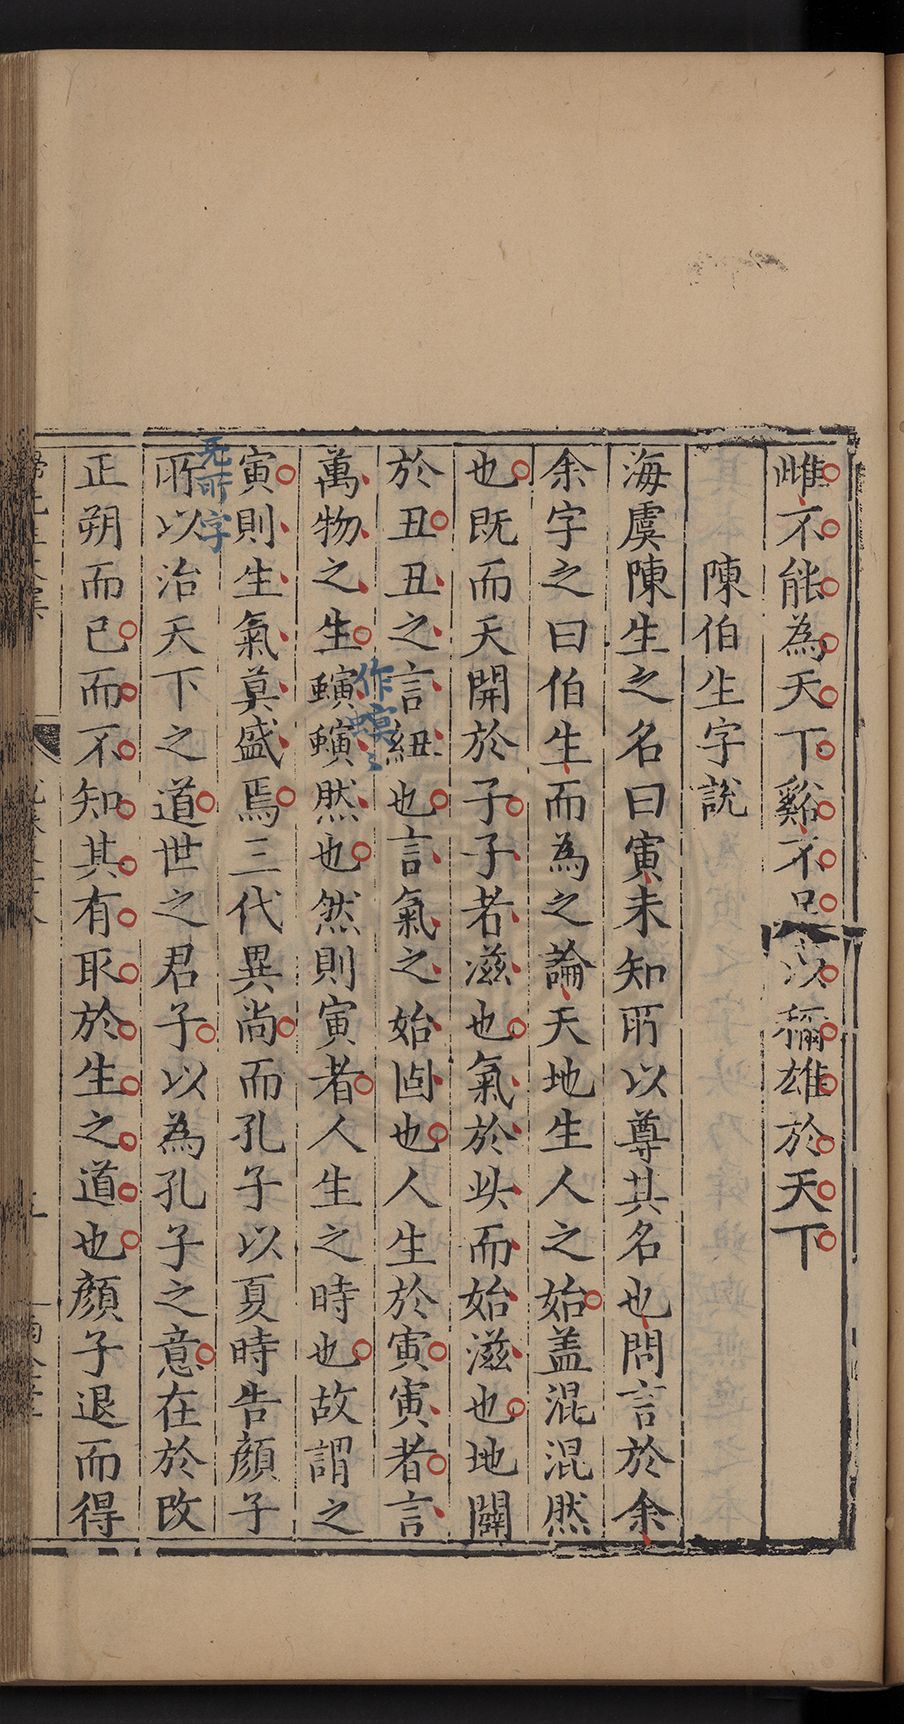 雌不能為天下谿不足以稱雄於天下
陳伯生字說
海虞陳生之名曰寅未知所以尊其名也問言於余
余字之曰伯生而為之論天地生人之始盖混混然
也既而天開於子子者滋也氣於此而始滋也地闢
於丑丑之言紐也言氣之始固也人生於寅寅者言
作螾〻
萬物之生螾螾然也然則寅者人生之時也故謂之
寅則生氣莫盛焉三代異尚而孔子以夏時告顏子
无所字
所以治天下之道世之君子以為孔子之意在於改
正朔而已而不知其有取於生之道也顏子退而得